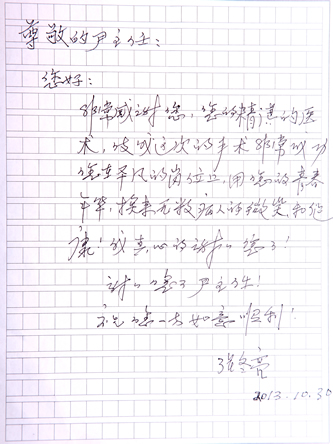 尊敬的尹主任：
您好：
非常感谢您，您的精道的医
术，使我这次的手术非常成功
您在平凡的岗位上，用您的青春
年华，换来无数病人的微笑和健
康！我真心的谢谢您了！
谢谢您了尹主任！
祝您一切如意顺利！
张冬亮
2013.10.30